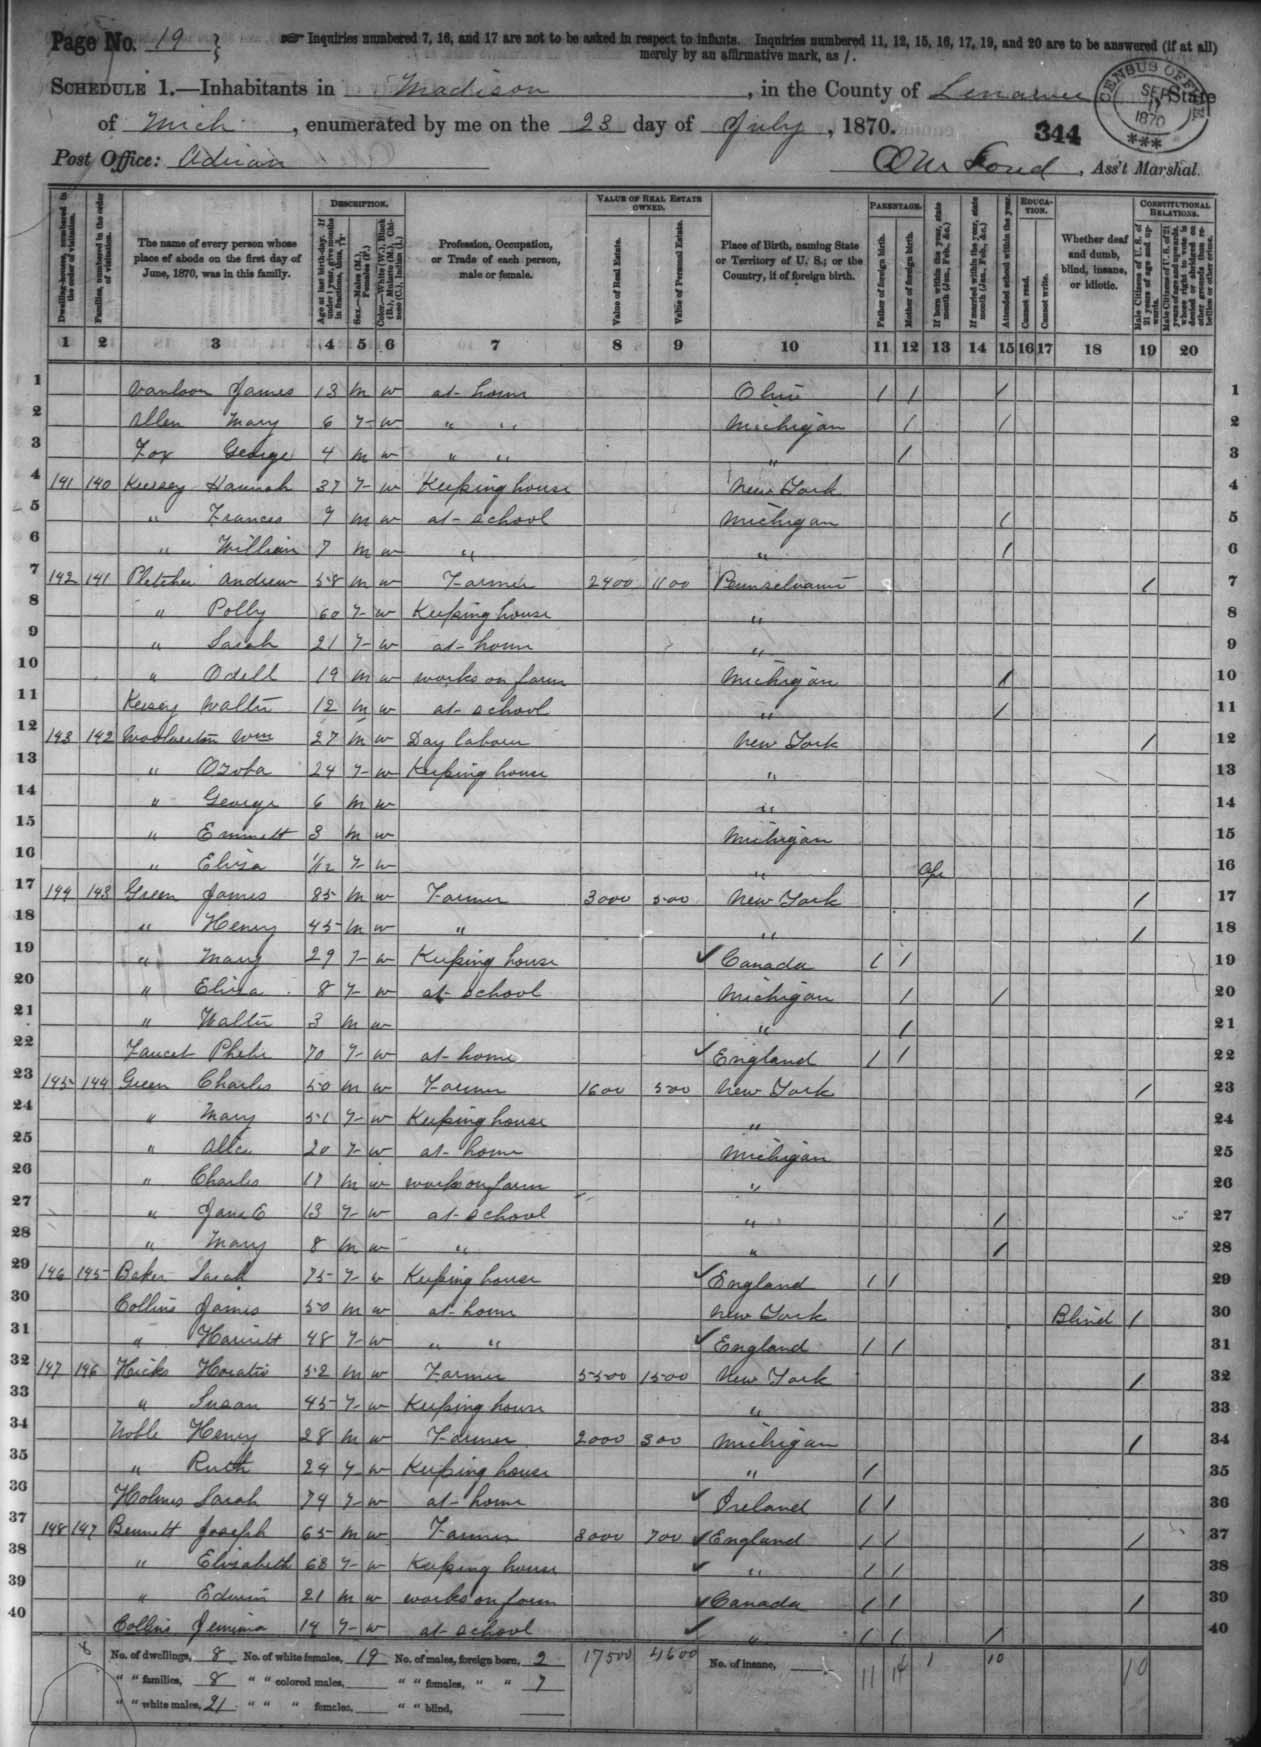 Page No. 19
☞ Inquiries numbered 7, 16, and 17 are not to be asked in respect to infants. Inquiries numbered 11, 12, 15, 16, 17, 19, and 20 are to be answered (if at all)
merely by an affirmative mark, as /.
SCHEDULE 1.—Inhabitants in Madison, in the County of Lenawee, State
of Mich, enumerated by me on the 23 day of July, 1870.
344
CENSUS OFFICE SEP 1870
Post Office: Adrian
, Ass't Marshal.
DESCRIPTION.
VALUE OF REAL ESTATE OWNED.
PARENTAGE.
EDUCATION.
CONSTITUTIONAL RELATIONS.
Dwelling-houses, numbered in the order of visitation.
Families, numbered in the order of visitation.
The name of every person whose place of abode on the first day of June, 1870, was in this family.
Age at last birth-day. If under 1 year, give months in fractions, thus, 3/12.
Sex.—Males (M.), Females (F.)
Color.—White (W.), Black (B.), Mulatto (M.), Chinese (C.), Indian (I.)
Profession, Occupation, or Trade of each person, male or female.
Value of Real Estate.
Value of Personal Estate.
Place of Birth, naming State or Territory of U. S.; or the Country, if of foreign birth.
Father of foreign birth.
Mother of foreign birth.
If born within the year, state month (Jan., Feb., &c.)
If married within the year, state month (Jan., Feb., &c.)
Attended school within the year.
Cannot read.
Cannot write.
Whether deaf and dumb, blind, insane, or idiotic.
Male Citizens of U. S. of 21 years of age and upwards.
Male Citizens of U. S. of 21 years of age and upwards, whose right to vote is denied or abridged on other grounds than rebellion or other crime.
1 2 3 4 5 6 7 8 9 10 11 12 13 14 15 16 17 18 19 20
1 Vanloon James 13 m w at home Ohio / / / 1
2 Allen Mary 6 F w " " Michigan / / 2
3 Fox George 4 m w " " " / 3
4 141 140 Kersey Hannah 37 F w Keeping house New York 4
5 " Frances 9 m w at school Michigan / 5
6 " William 7 m w " " / 6
7 142 141 Pletcher Andrew 58 m w Farmer 2400 1100 Pennselvania / 7
8 " Polly 60 F w Keeping house " 8
9 " Sarah 21 F w at home " 9
10 " Odell 19 m w works on farm Michigan / 10
11 Kersey Walter 12 m w at school " / 11
12 143 142 Woolverton Wm 27 m w Day laborer New York / 12
13 " 24 F w Keeping house " 13
14 " George 6 m w " 14
15 " Emmett 3 m w Michigan 15
16 " Eliza 1/12 F w " Apr 16
17 144 143 Green James 85 m w Farmer 3000 500 New York / 17
18 " Henry 45 m w " " / 18
19 " Mary 29 F w Keeping house ✓ Canada / / 19
20 " Eliza 8 F w at school Michigan / / 20
21 " Walter 3 m w " / 21
22 Faucet Phebe 70 F w at home ✓ England / / 22
23 145 144 Green Charles 50 m w Farmer 1600 500 New York / 23
24 " Mary 51 F w Keeping house " 24
25 " Alice 20 F w at home Michigan 25
26 " Charles 17 m w works on farm " 26
27 " Jane E 13 F w at school " / 27
28 " Mary 8 m w " " / 28
29 146 145 Baker Sarah 75 F w Keeping house ✓ England / / 29
30 Collins James 50 m w at home New York Blind / 30
31 " Harriett 48 F w " " ✓ England / / 31
32 147 146 Hicks Horatio 52 m w Farmer 5500 1500 New York / 32
33 " Susan 45 F w Keeping house " 33
34 Noble Henry 28 m w Farmer 2000 300 Michigan / 34
35 " Ruth 24 F w Keeping house " / 35
36 Holmes Sarah 74 F w at home ✓ Ireland / / 36
37 148 147 Bennett Joseph 65 m w Farmer 3000 700 ✓ England / / / 37
38 " Elizabeth 68 F w Keeping house ✓ " / / 38
39 " Edwin 21 m w works on farm ✓ Canada / / / 39
40 Collins Jemima 14 F w at school ✓ " / / / 40
No. of dwellings, 8 No. of white females, 19 No. of males, foreign born, 2 17500 4600 No. of insane, 11 14 1 10 10
" " families, 8 " " colored males, " " females, " " 7
" " white males, 21 " " " females, " " blind,